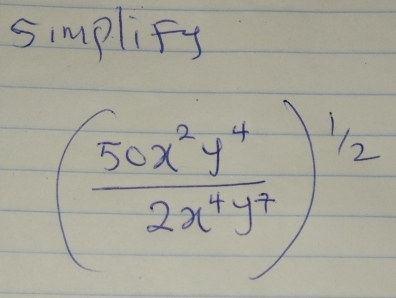 Simplify
(50x²y⁴ / 2x⁴y⁷)^1/2